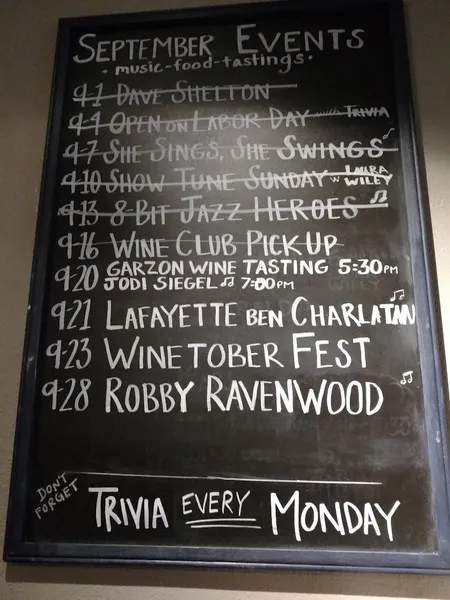 SEPTEMBER EVENTS
• music-food-tastings •
9-1 DAVE SHELTON
9-4 OPEN ON LABOR DAY with TRIVIA
9-7 SHE SINGS, SHE SWINGS
9-10 SHOW TUNE SUNDAY W LAURA WILEY
9-13 8-BIT JAZZ HEROES
9-16 WINE CLUB PICK UP
9-20 GARZON WINE TASTING 5:30PM
JODI SIEGEL 7:00PM
9-21 LAFAYETTE BEN CHARLATAN
9-23 WINETOBER FEST
9-28 ROBBY RAVENWOOD
DON'T FORGET
TRIVIA EVERY MONDAY